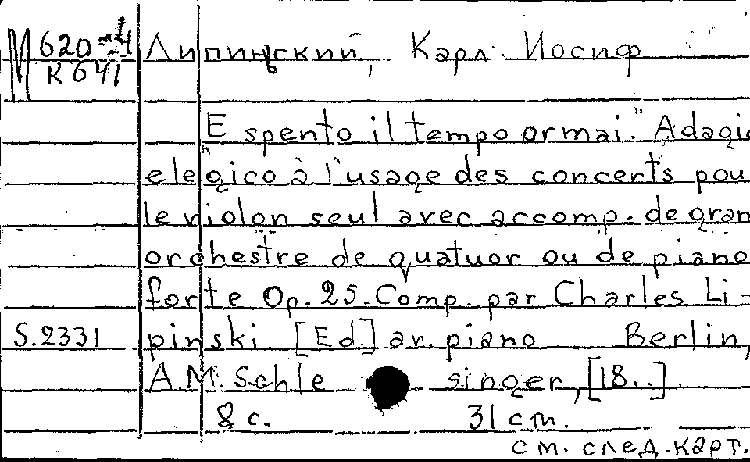 М 620-4 Липинский, Карл Иосиф
К 641
"E spento il tempo ormai." Adagio
elegico à l'usage des concerts pou
le violon seul avec accomp. de gran
orchestre de quatuor ou de piano
forte Op. 25. Comp. par Charles Li-
S.2331 pinski [Ed] av. piano Berlin,
A.M. Schle singer, [18..]
8 с. 31 cm.
см. след. карт.